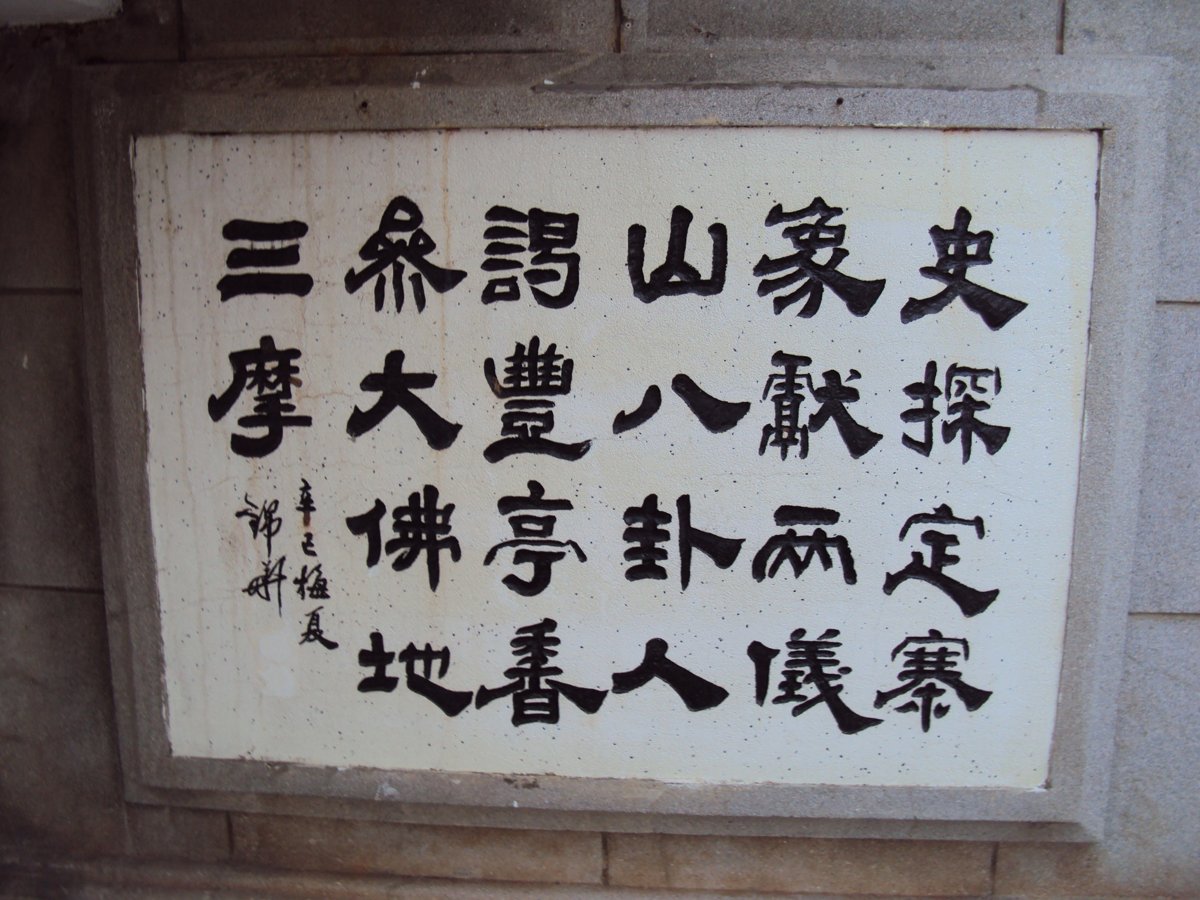 史探定寨
象獻兩儀
山八卦人
謁豐亭香
參大佛地
三摩
辛巳梅夏
錦